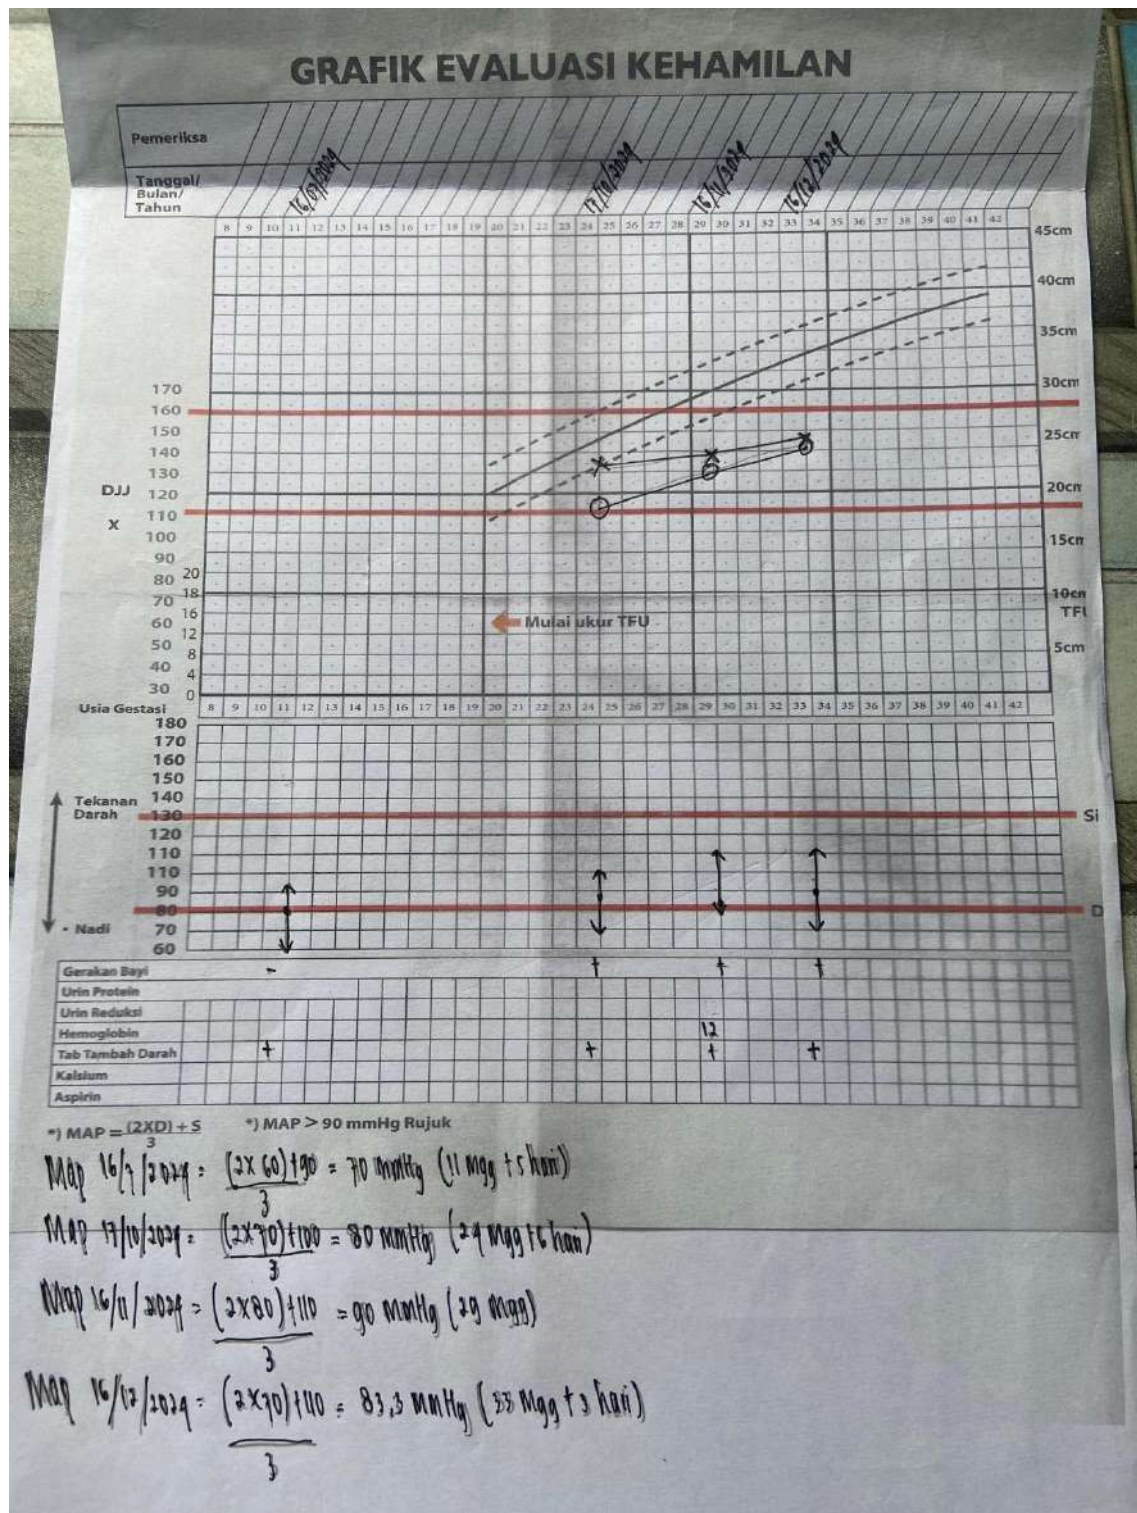 GRAFIK EVALUASI KEHAMILAN
Pemeriksa
Tanggal/
Bulan/
Tahun
16/07/2024 17/10/2024 16/11/2024 16/12/2024
8 9 10 11 12 13 14 15 16 17 18 19 20 21 22 23 24 25 26 27 28 29 30 31 32 33 34 35 36 37 38 39 40 41 42
45cm
40cm
35cm
170 30cm
160
150
140 25cm
130
DJJ 120 20cm
X 110
100 15cm
90
80 20
70 18 10cm
60 16 Mulai ukur TFU TFU
50 12
8 5cm
40 4
30 0
Usia Gestasi 8 9 10 11 12 13 14 15 16 17 18 19 20 21 22 23 24 25 26 27 28 29 30 31 32 33 34 35 36 37 38 39 40 41 42
180
170
160
150
Tekanan 140
Darah 130 Si
120
110
110
90
80 D
• Nadi 70
60
Gerakan Bayi - + + +
Urin Protein
Urin Reduksi
Hemoglobin 12
Tab Tambah Darah + + + +
Kalsium
Aspirin
*) MAP = (2XD) + S *) MAP > 90 mmHg Rujuk
3
Map 16/7/2024 = (2x60)+90 = 70 mmHg (11 Mgg +5 hari)
3
Map 17/10/2024 = ((2x70)+100 = 80 mmHg (24 Mgg +6 hari)
3
Map 16/11/2024 = (2x80)+110 = 90 mmHg (29 Mgg)
3
Map 16/12/2024 = (2x70)+110 = 83,3 mmHg (33 Mgg +3 hari)
3